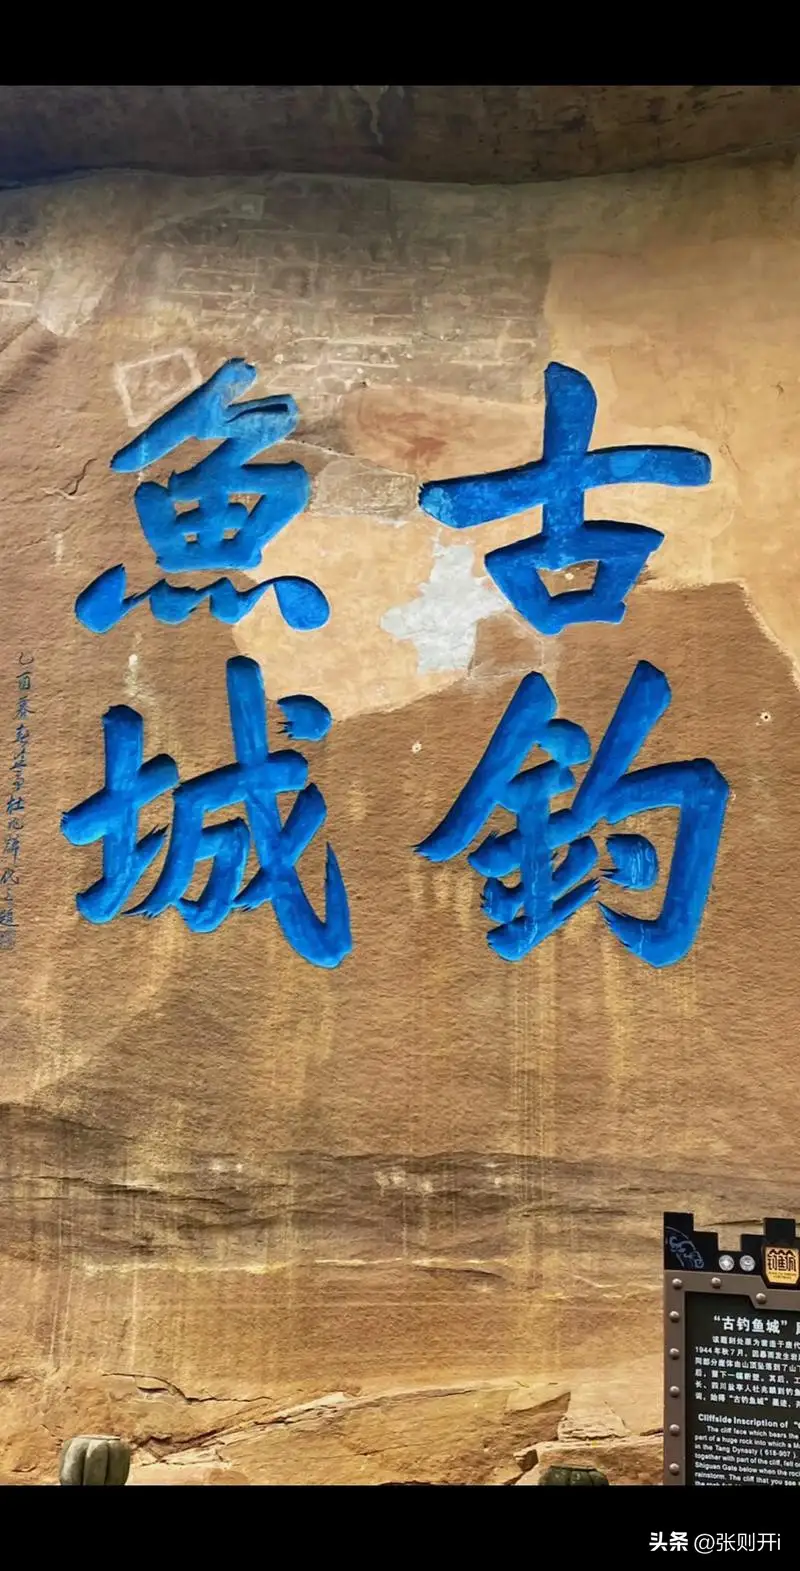 古钓
魚城
"古钓鱼城"
该题刻处原为营造于唐代
1944年秋7月，因暴雨发生岩
同部分崖体由山顶坠落到了山
后，留下一幅断壁。其后，工
长、四川盐亭人杜兆
词，始得"古钓鱼城"墨迹，
Cliffside Inscription of "
The cliff face which bears the
part of a huge rock into which a M
in the Tang Dynasty (618-907)
together with part of the cliff, fell o
Shiguan Gate below when the roc
rainstorm. The cliff that you see
头条 @张则开i